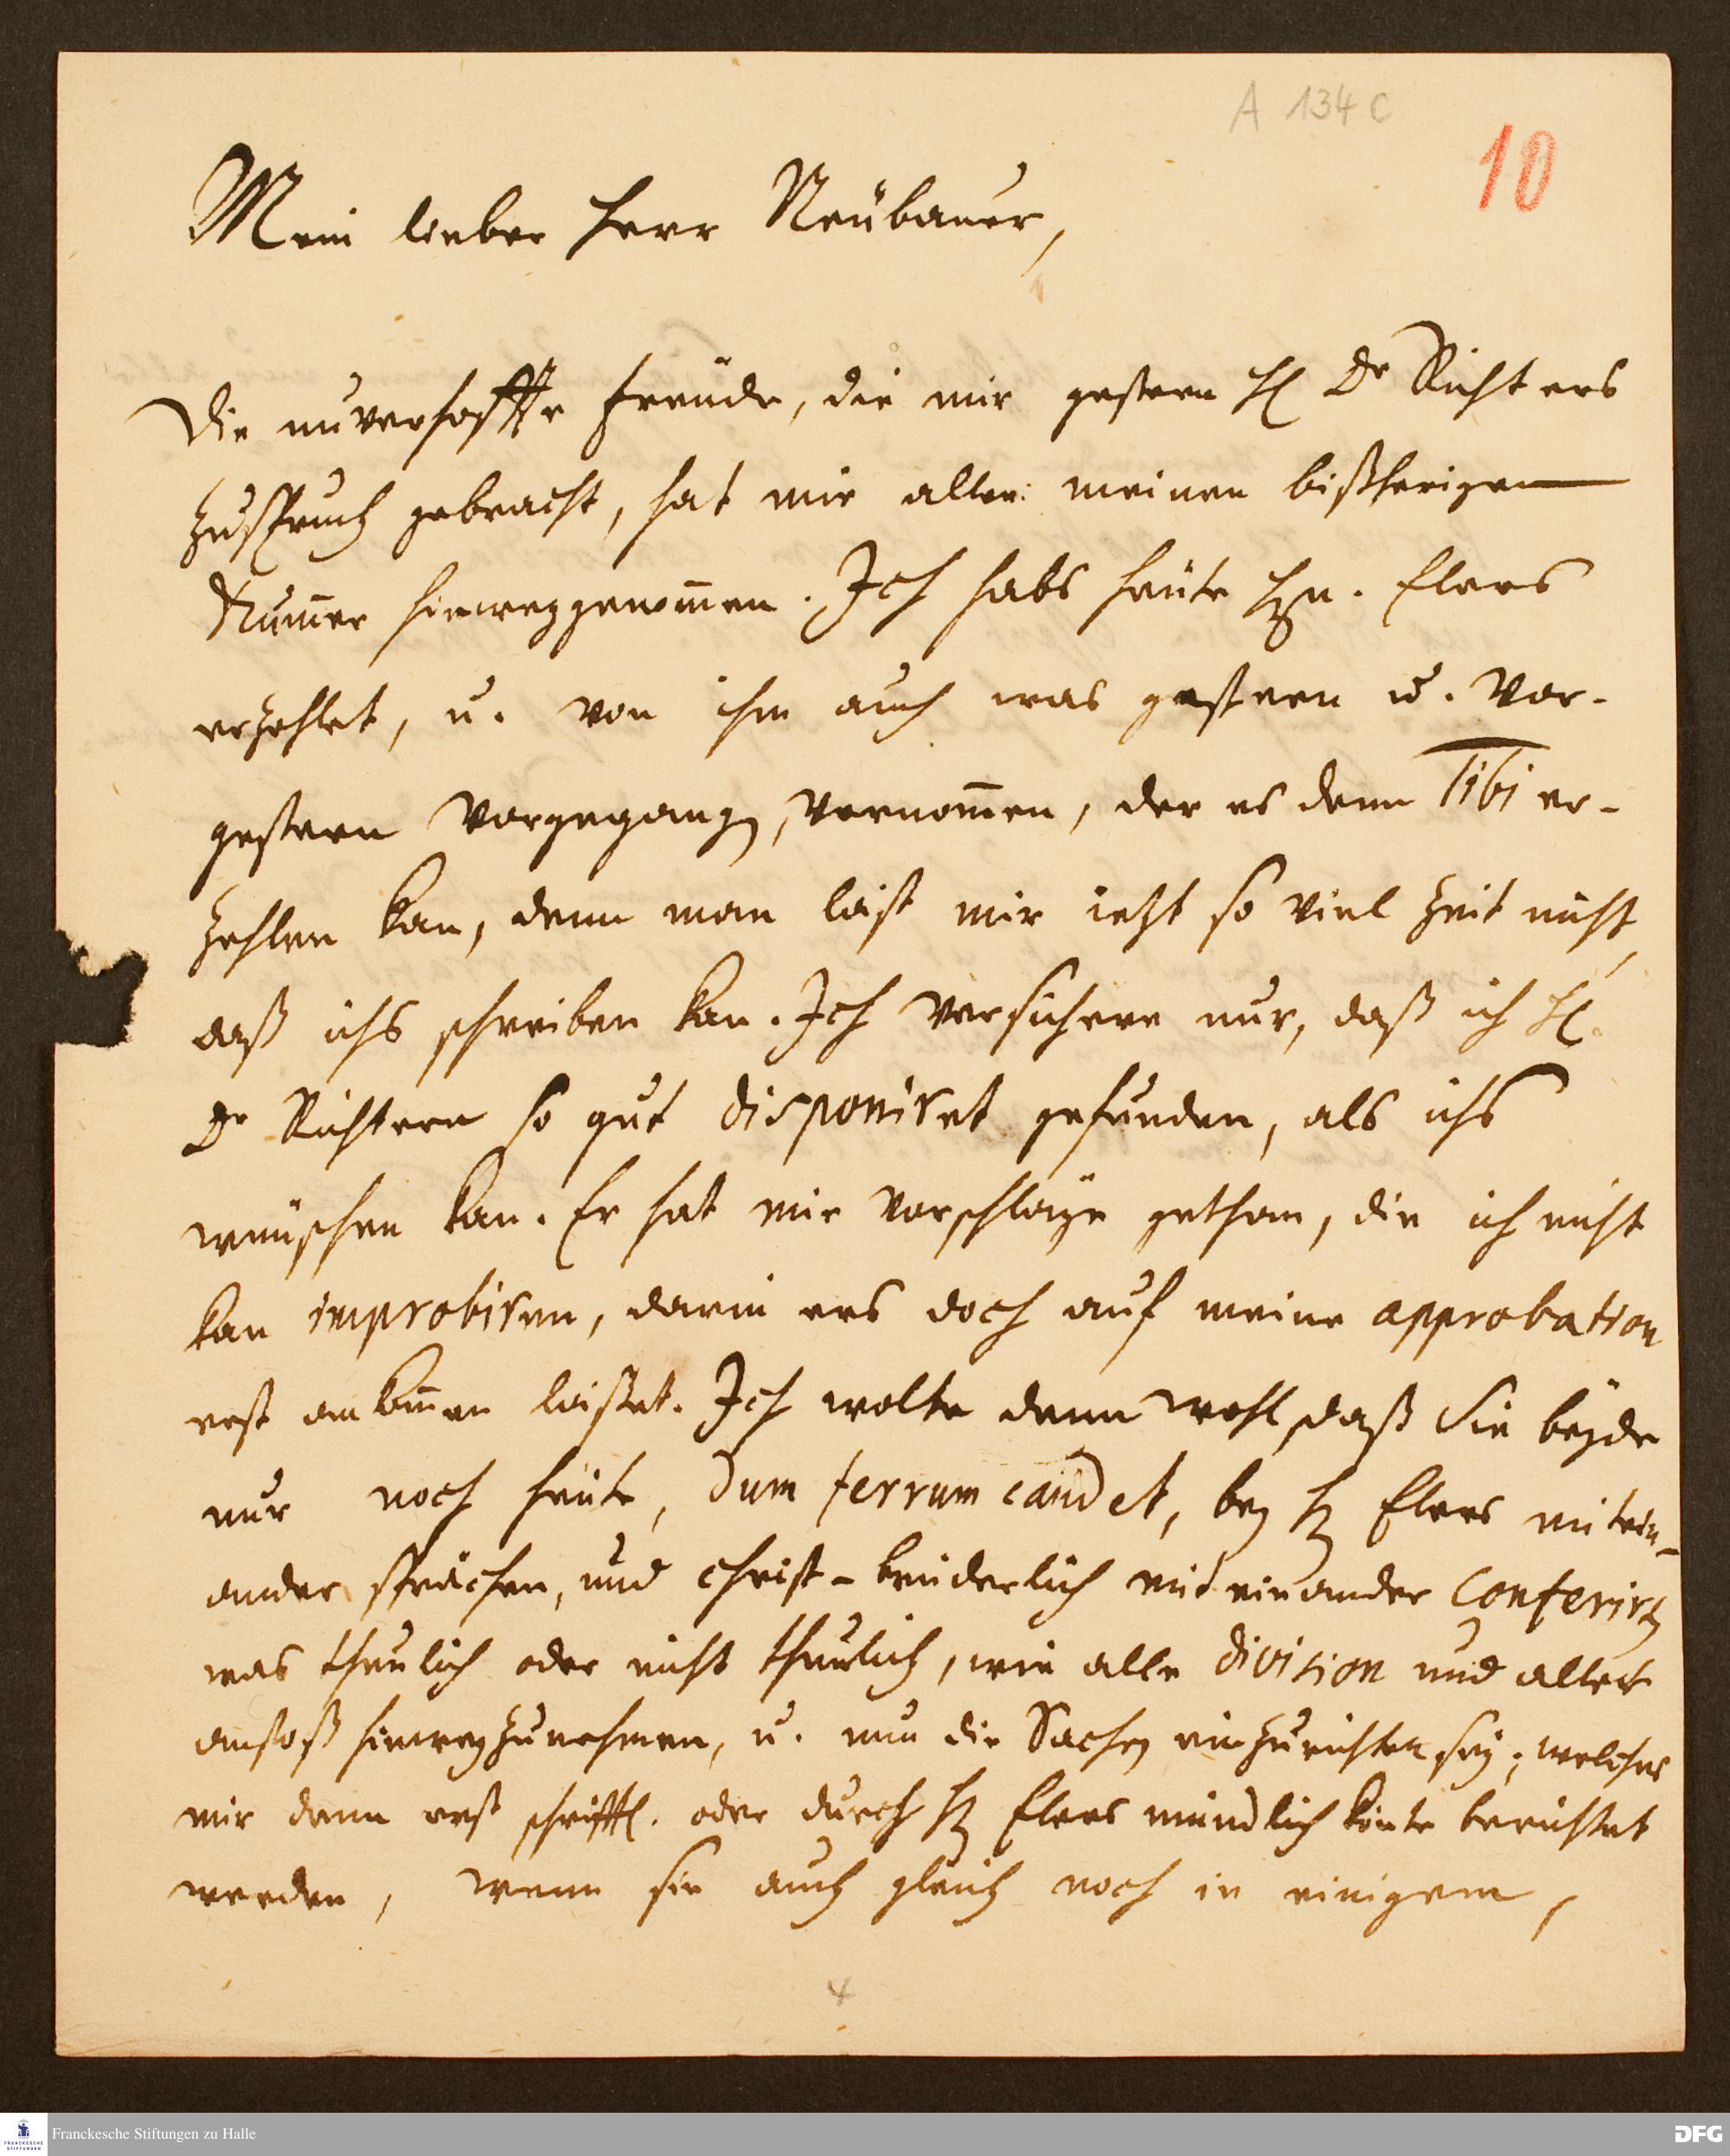 A 134 c
10
Mein lieber Herr Neübauer,
Die unverhoffte Freüde, die mir gestern H Dr Richters
Zuspruch gebracht, hat mir allen meinen bißherigen
Kum̄er hinweggenom̄en. Ich habs heüte Hn. Elers
erzehlet, u. von ihm auch was gestern u. vor-
gestern vorgegangen, vernom̄en, der es denn Tibi er-
zehlen kan, denn man läst mir ietzt so viel Zeit nicht,
daß ichs schreiben kan. Ich versichere nur, daß ich H.
Dr Richtern so gut disponiret gefunden, als ichs
wünschen kan. Er hat mir Vorschläge gethan, die ich nicht
kan improbiren, darin ers doch auf meine approbation
erst ankom̄en läßet. Ich wolte denn wohl, daß Sie beÿde
nur noch heüte, dum ferrum candet, bey H Elers mitein-
ander sprächen, und christ-brüderlich mit einander conferirten
was thunlich oder nicht thunlich, wie alle division und aller
anstoß hinwegzunehmen, u. nun die Sachen einzurichten seÿ; welches
mir denn erst schrifftl. oder durch H Elers mündlich könte berichtet
werden, wenn sie auch gleich noch in einigem,
4
Franckesche Stiftungen zu Halle
FRANCKESCHE
STIFTUNGEN
DFG